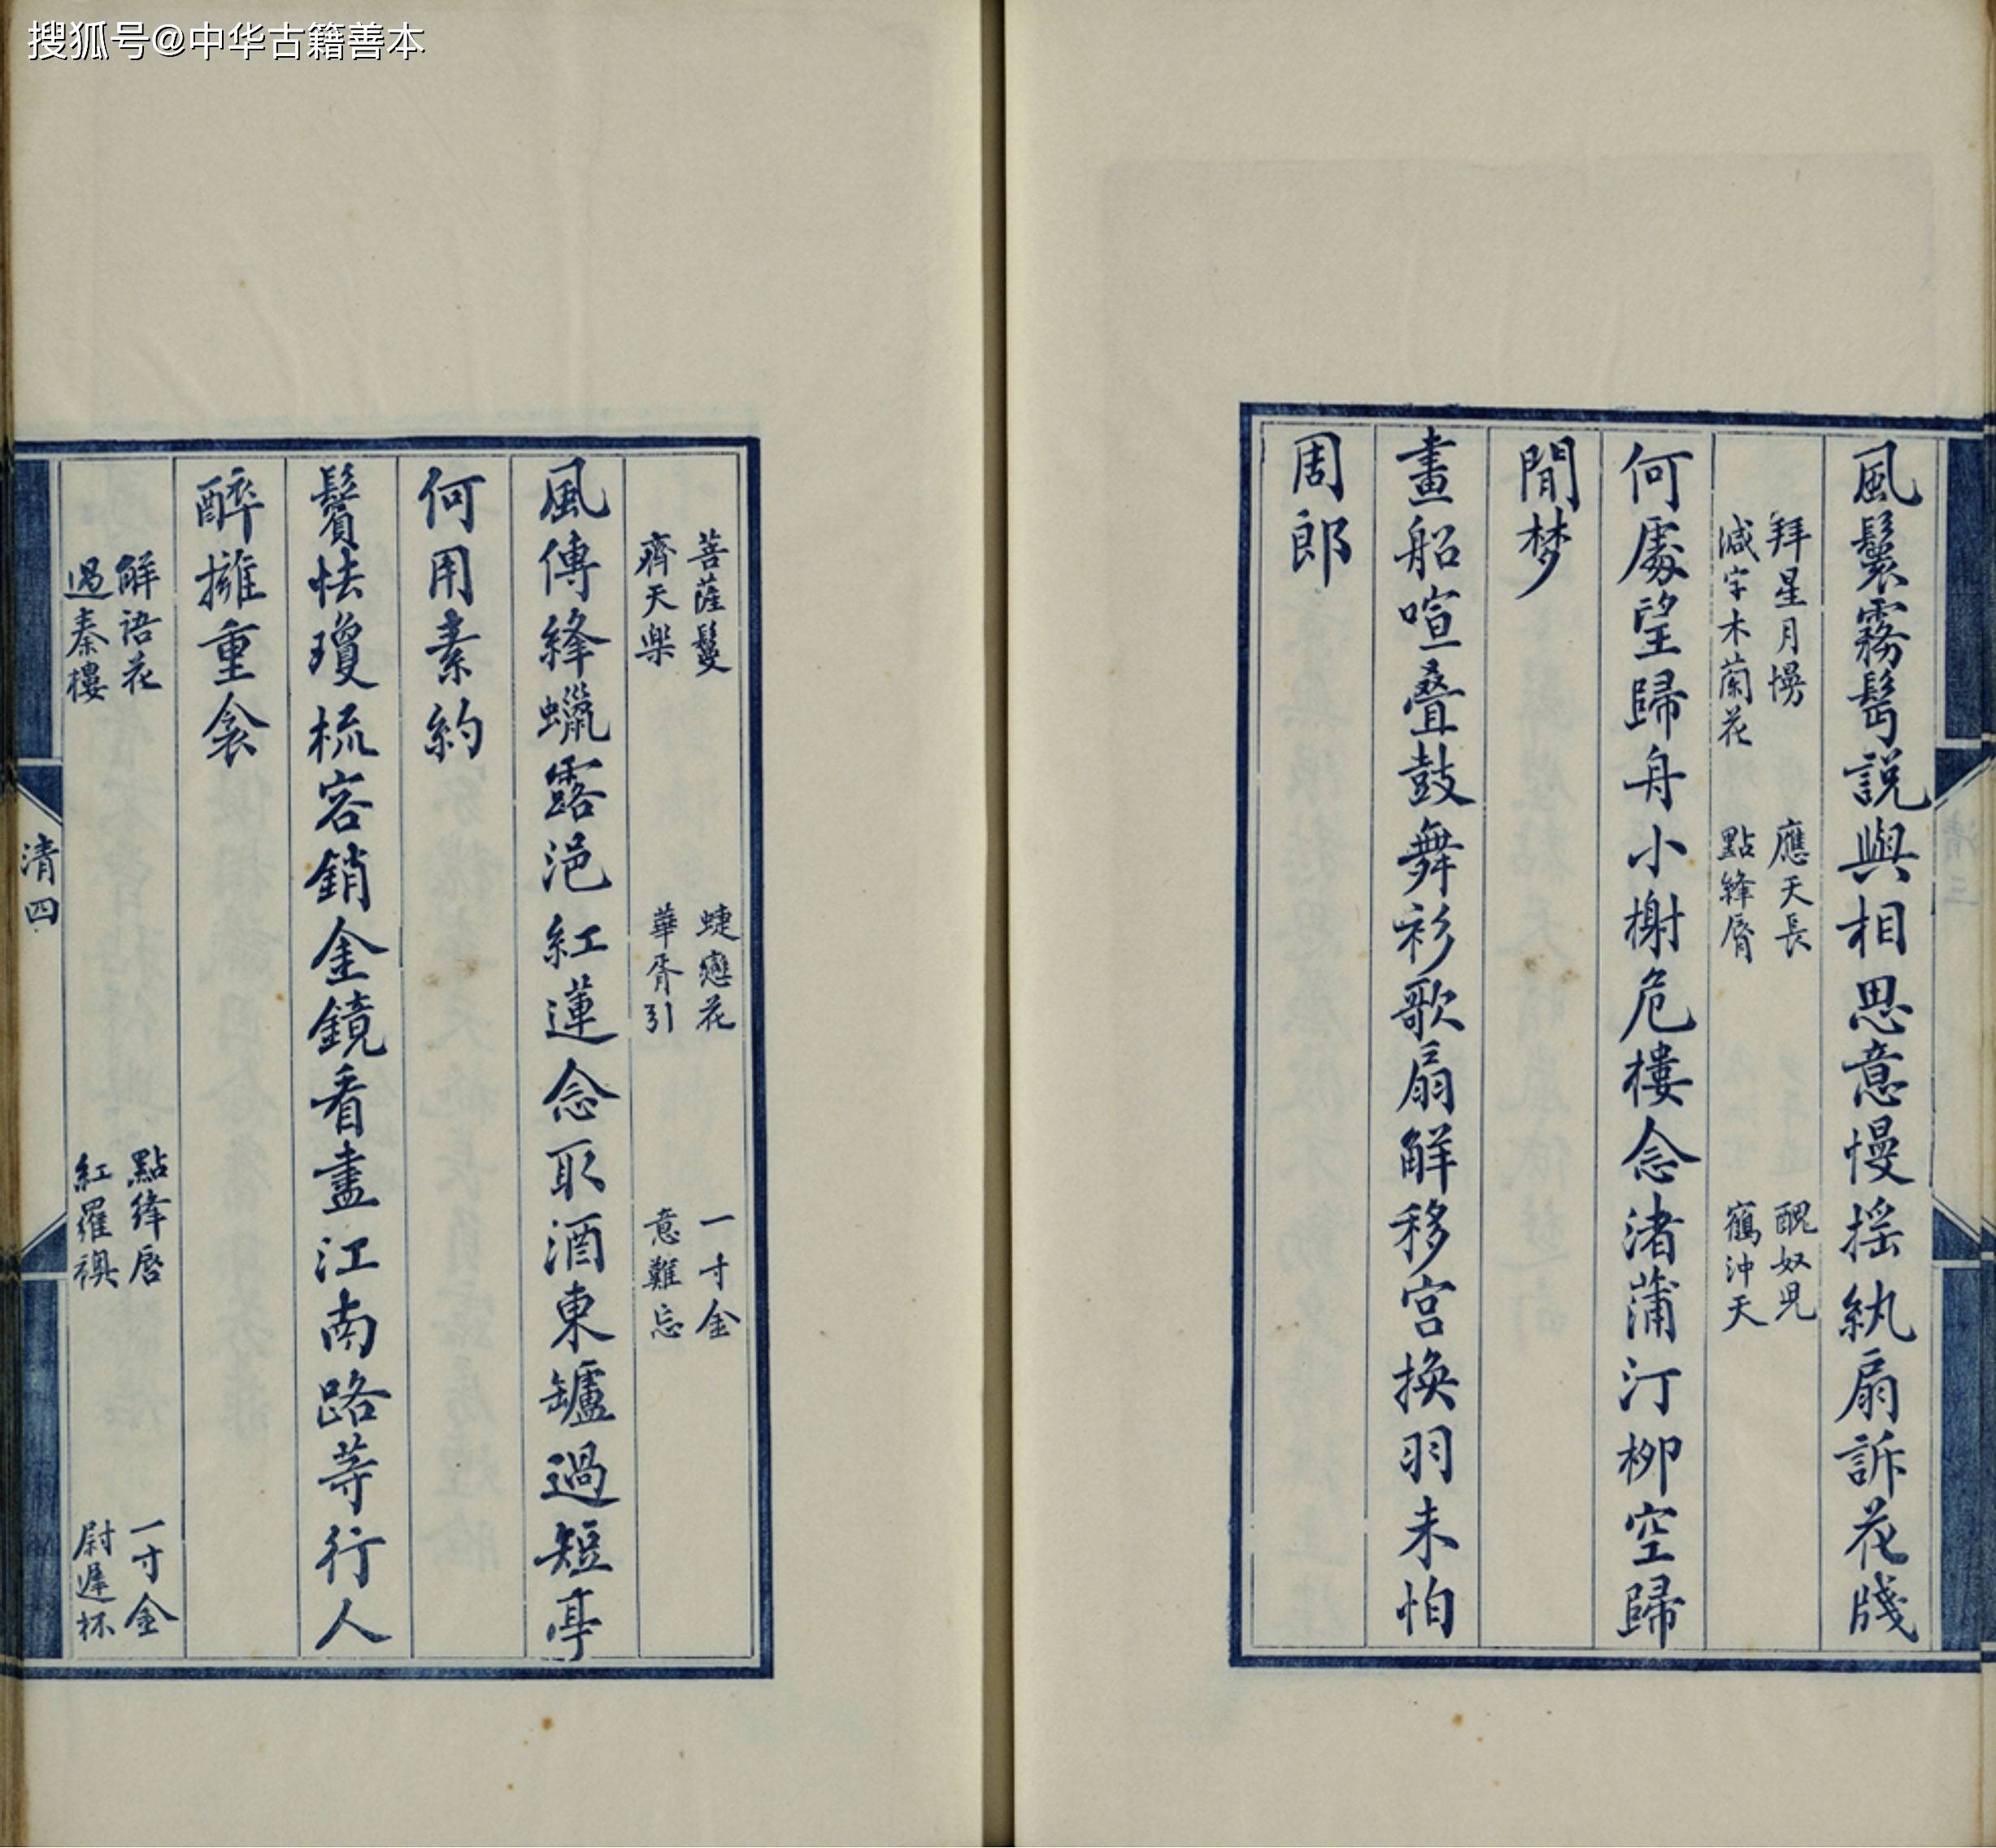 搜狐号@中华古籍善本
風鬟霧髩説與相思意慢揺紈扇訴花牋
拜星月慢 應天長 醜奴児
減字木蘭花 點絳脣 鶴沖天
何處望歸舟小榭危樓念渚蒲汀柳空歸
閒梦
畫船喧疊鼓舞衫歌扇解移宫換羽未怕
周郎
菩薩鬘 蜨戀花 一寸金
齊天樂 華胥引 意難忘
風傳絳蠟露浥紅蓮念取酒東壚過短亭
何用素約
鬢怯瓊梳容銷金鏡看盡江南路等行人
醉擁重衾
解語花 點絳唇 一寸金
過秦樓 紅羅襖 尉遲杯
清四
清三